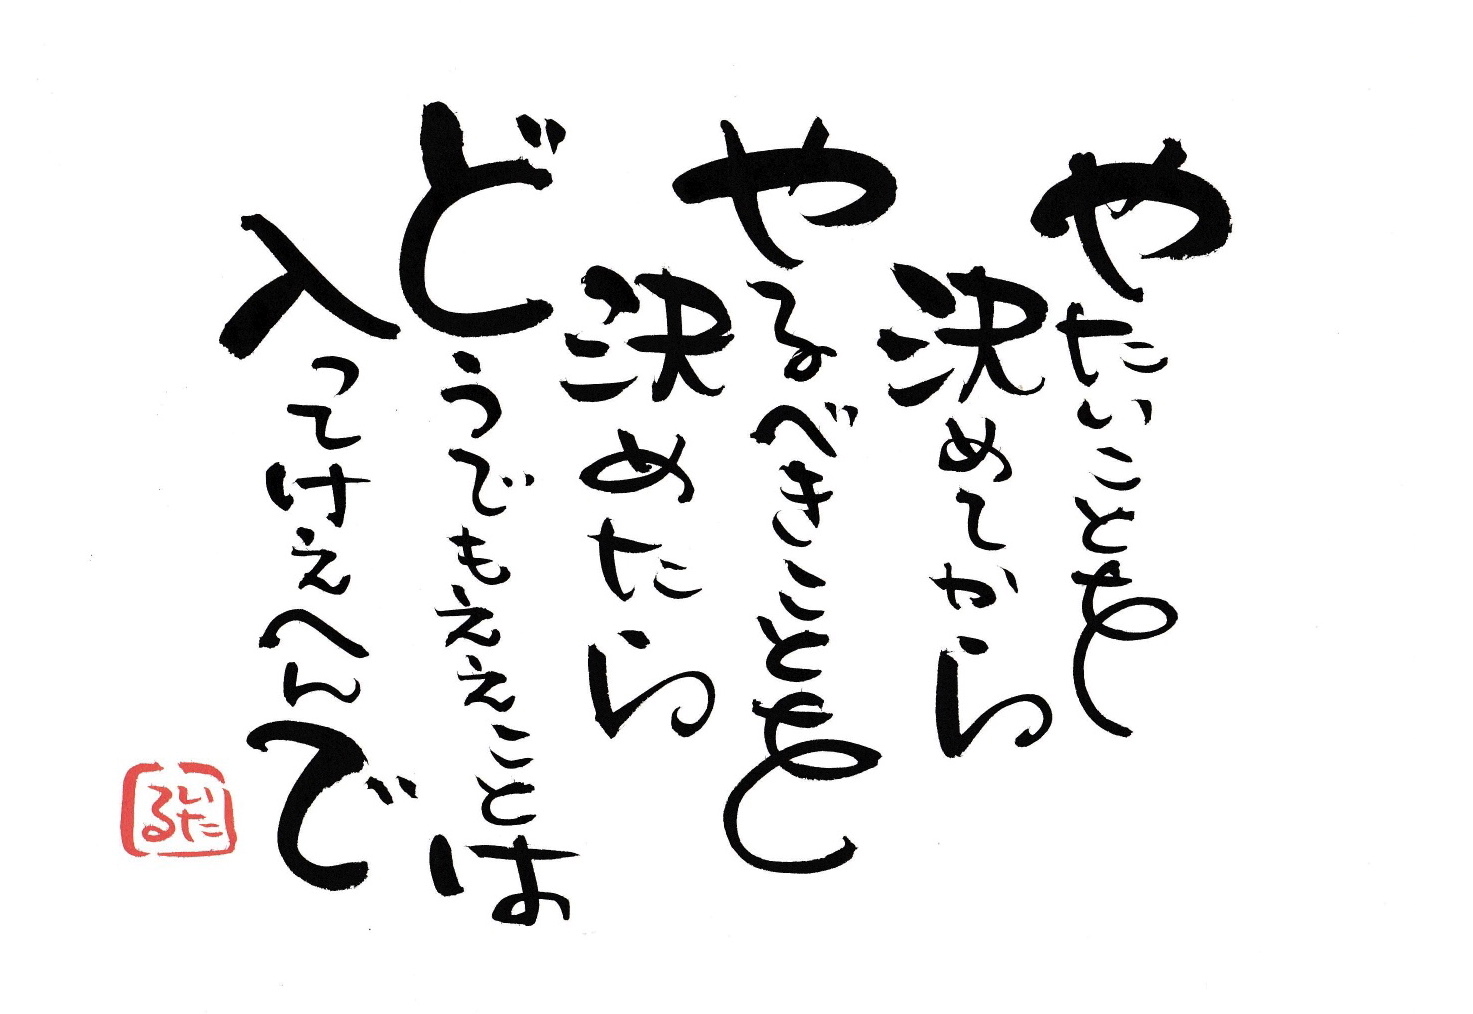 やたいことを
決めてから
やるべきことを
決めたら
どうでもええことは
入ってけえへんで
いた
る